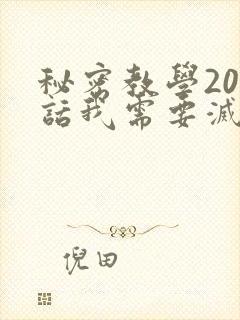 秘密教學20
話我需要滅
倪田